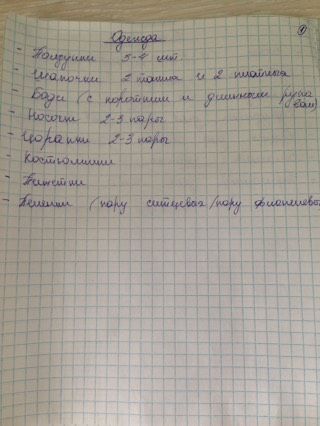 ①
Одежда
- Ползунки 3-4 шт.
- Шапочки 2 тонких и 2 плотных
- Боди (с коротким и длинным рукавом)
- Носочки 2-3 пары
- Царапки 2-3 пары
- Костюмчики
- Пелёнки (пару ситцевых/пару фланелевых